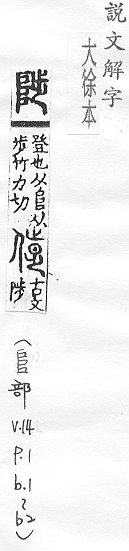 說文解字
大徐本
陟
登也从𨸏从
步竹力切
𨽌古文
陟
(𨸏部
V.14
P.1
b.1
~
b2)